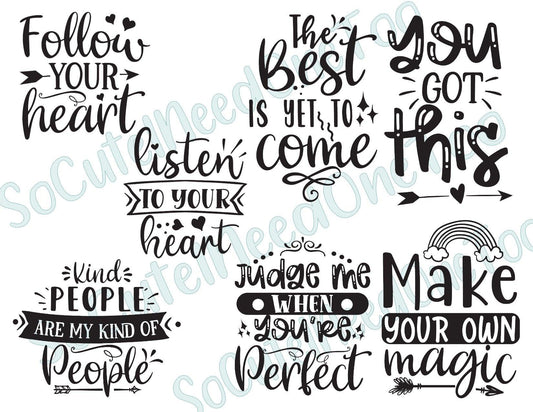 Follow
YOUR
heart
The
Best
IS YET TO
come
you
GOT
this
listen
TO YOUR
heart
Kind
PEOPLE
ARE MY KIND OF
People
Judge me
WHEN
You're
Perfect
Make
YOUR OWN
magic
SoCuteINeedOneToo
SoCuteINeedOneToo